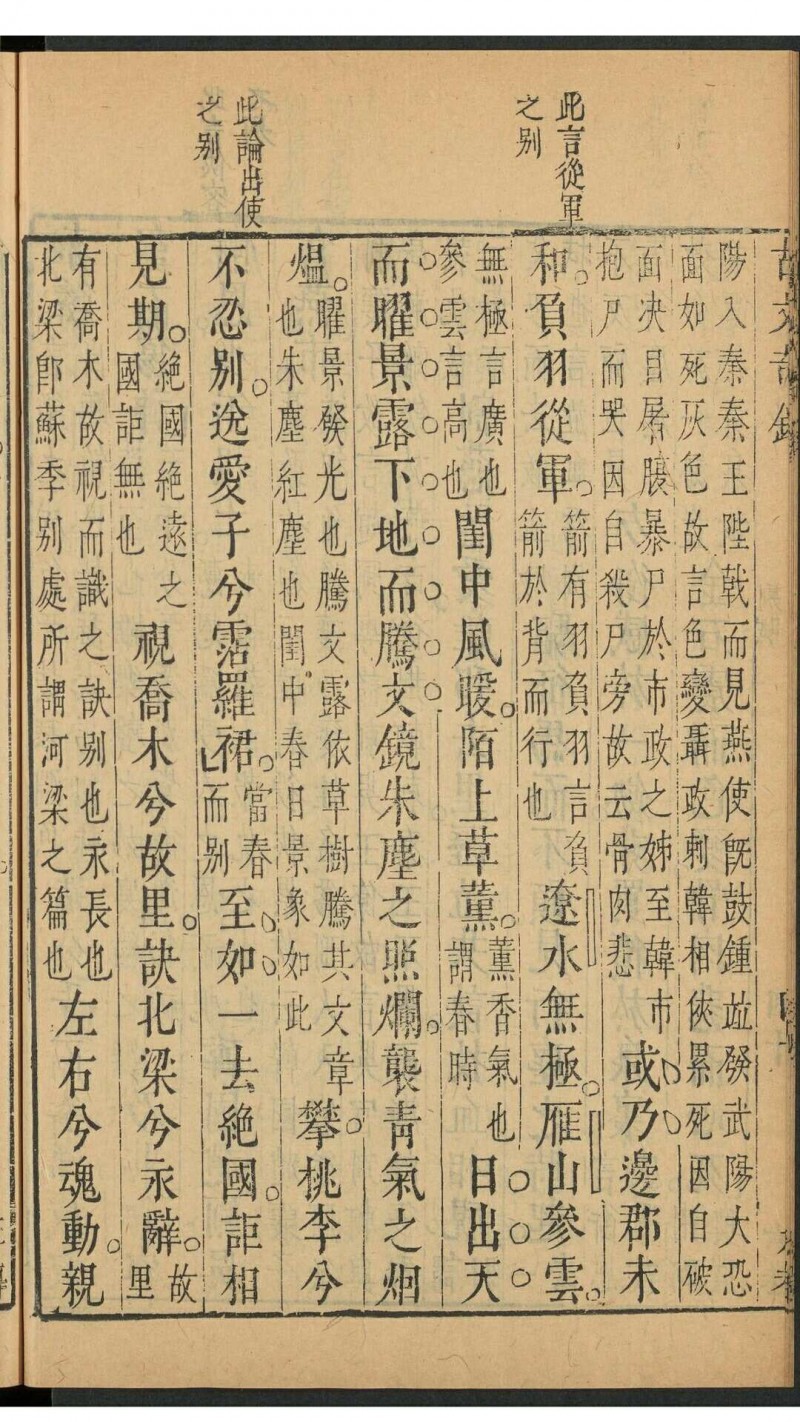 此言從軍
之別
此論出使
之別
陽入秦秦王陛戟而見燕使既鼓鍾並發武陽大恐
面如死灰色故言色變聶政刺韓相俠累死因自破
面決目屠膓暴尸於市政之姊至韓市
抱尸而哭因自殺尸旁故云骨肉悲
或乃邊郡未
和負羽從軍。
箭有羽負羽言負
箭於背而行也
遼水無極。雁山參雲。
無極言廣也
參雲言高也
閨中風暖。陌上草薰。
薰香氣也
謂春時
日出天
而曜景露下地而騰文鏡朱塵之照爛。襲青氣之烟
熅。
曜景發光也騰文露依草樹騰其文章
也朱塵紅塵也閨中春日景象如此
攀桃李兮
不忍別。送愛子兮霑羅裙。
當春
而別
至如一去絕國。詎相
見期。
絕國絕遠之
國詎無也
視喬木兮故里。訣北梁兮永辭。
故
里
有喬木故視而識之訣別也永長也
北梁卽蘇季別處所謂河梁之篇也
左右兮魂動。親